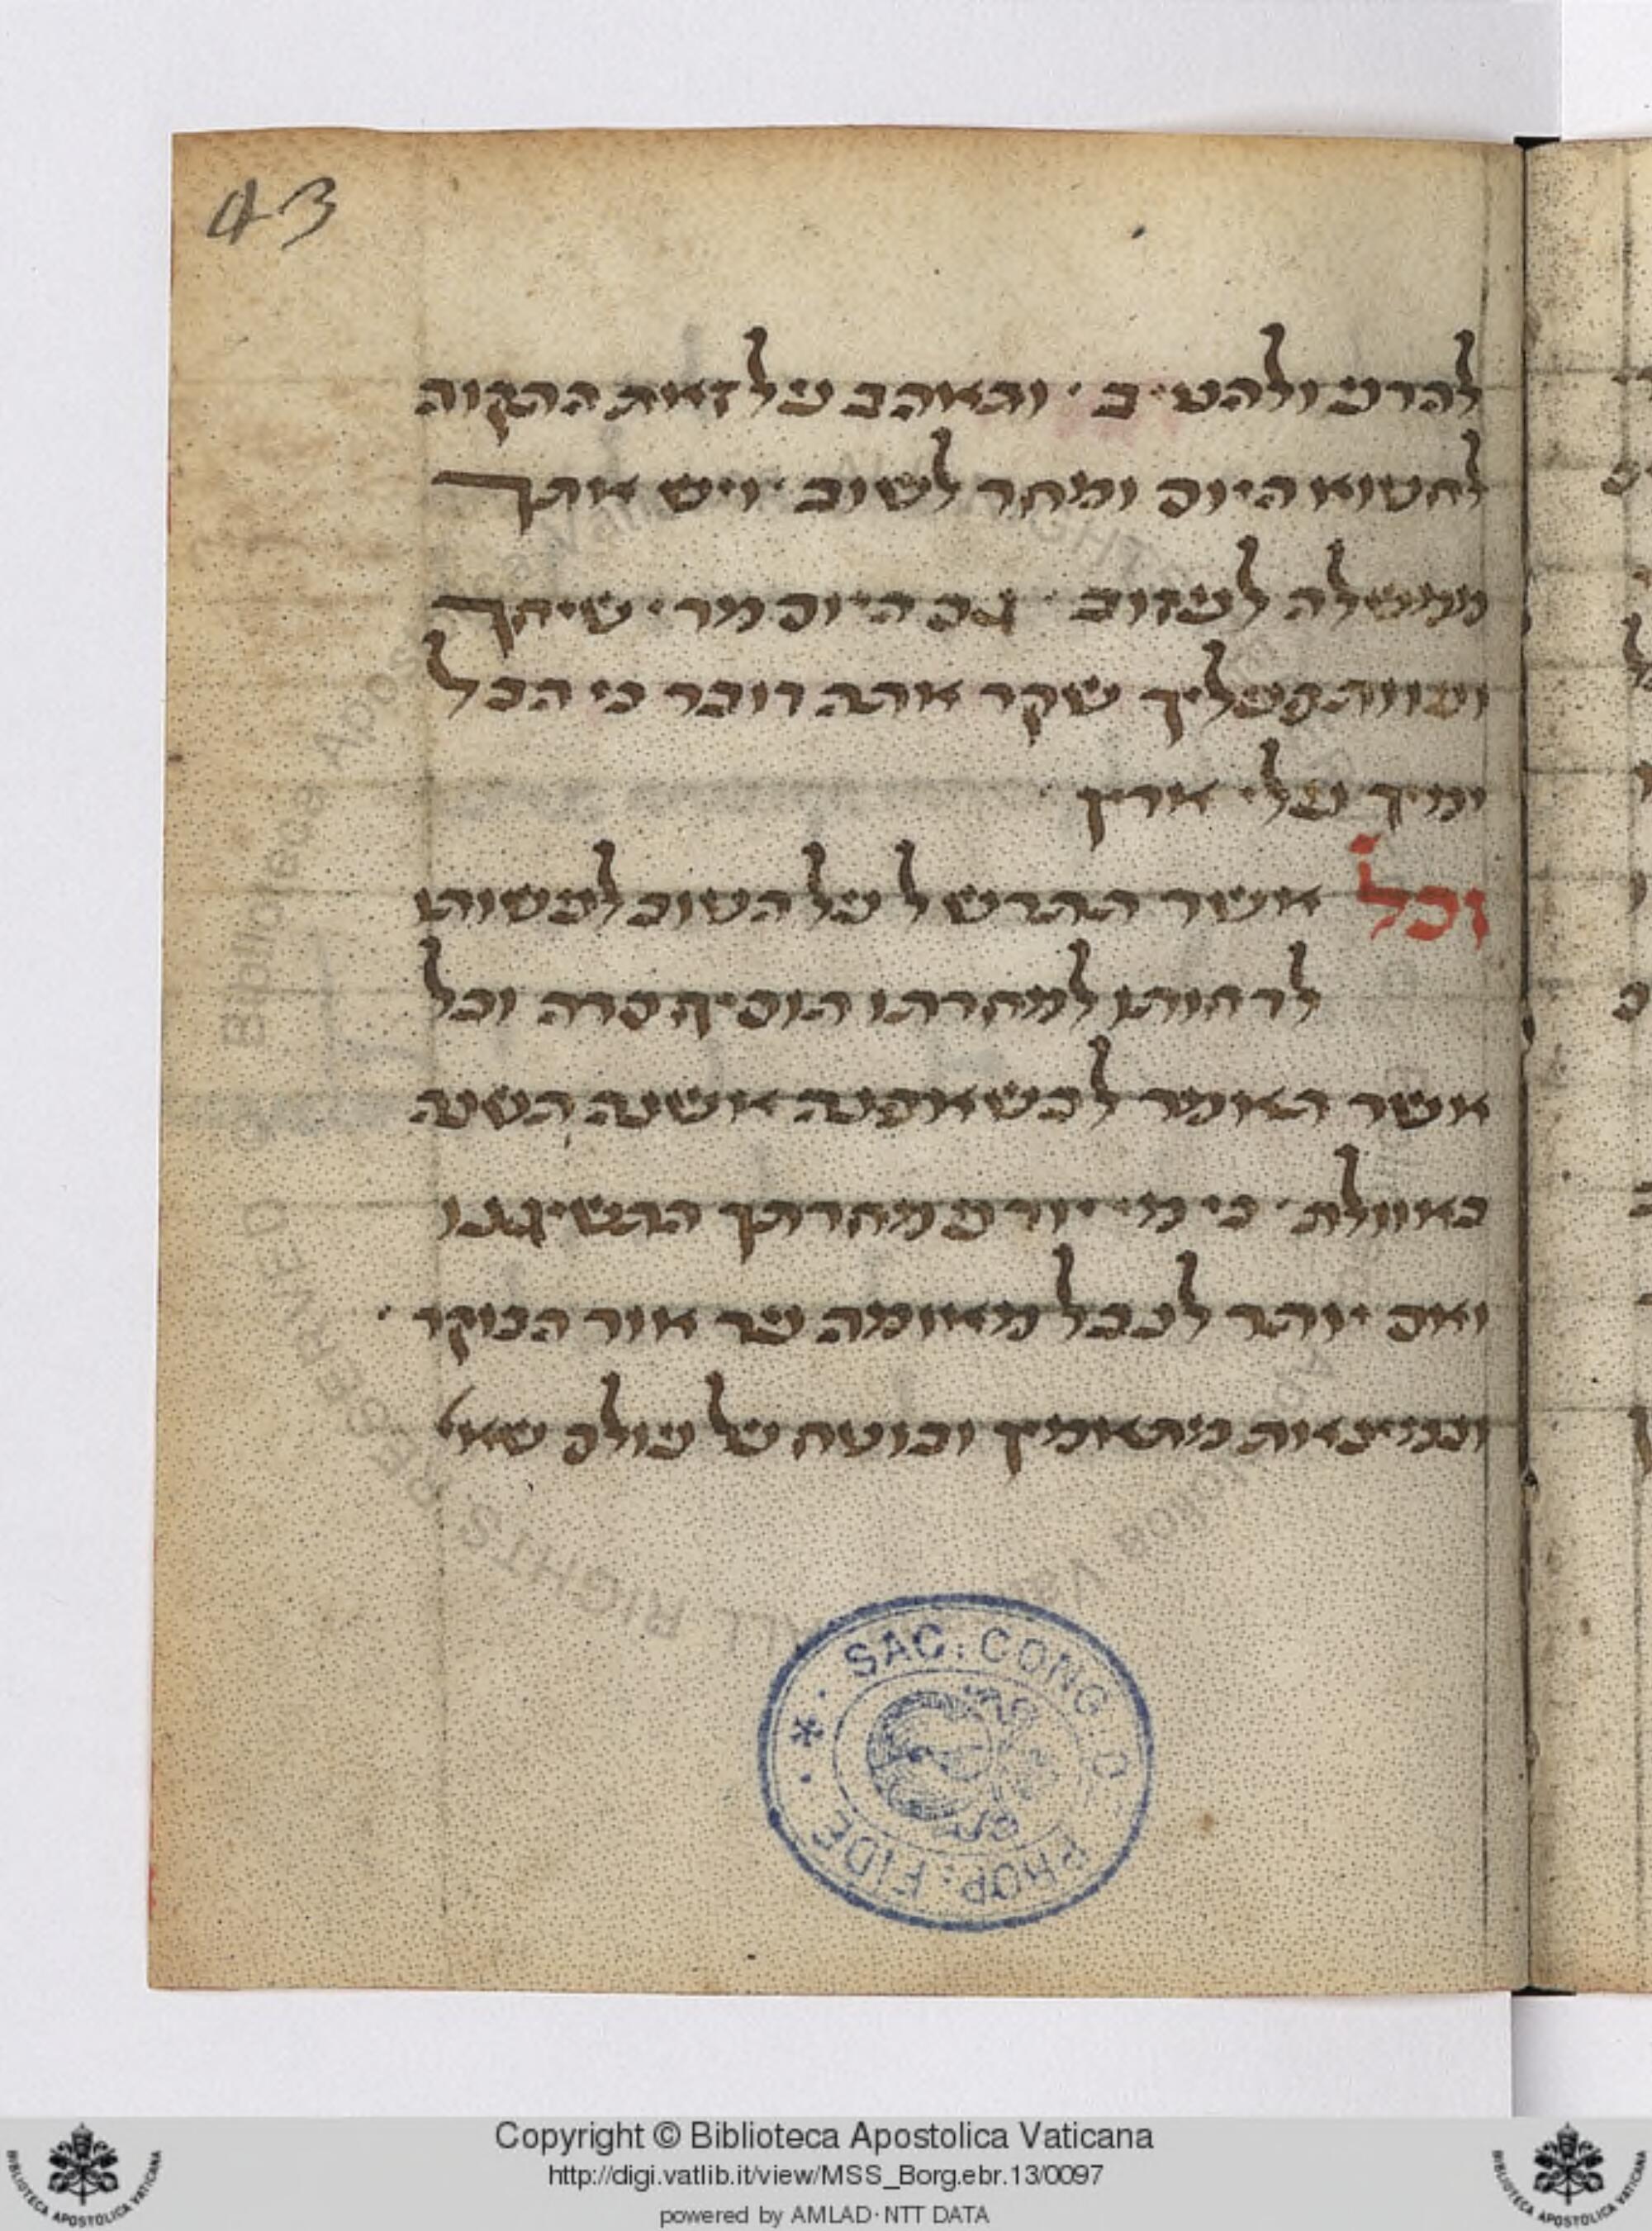 43
להרע ולהטיב · ותאהב על זאת התקוה
לחטוא היום ומחר לשוב · ויש אתך
ממשלה לעזוב · גם היום מר שיחך
ועוות פעליך שקר אתה דובר כי הבל
ימיך עלי ארץ ·
וכל אשר תתרשל על הטוב לעשותו
לדחותו למחרתו תוסיף סרה וכל
אשר תאמר לכשאפנה אשנה תשנה
באוולת · כי מי יודע מחרתך התשיגנו
ואם יותר לבבל מאומה עד אור הבוקר ·
ובמיצאות מתאמיך ובוטח על עולם שאי
SAC : CONG : D : PROP : FIDE
Copyright © Biblioteca Apostolica Vaticana
http://digi.vatlib.it/view/MSS_Borg.ebr.13/0097
powered by AMLAD · NTT DATA
BIBLIOTECA APOSTOLICA VATICANA
BIBLIOTECA APOSTOLICA VATICANA